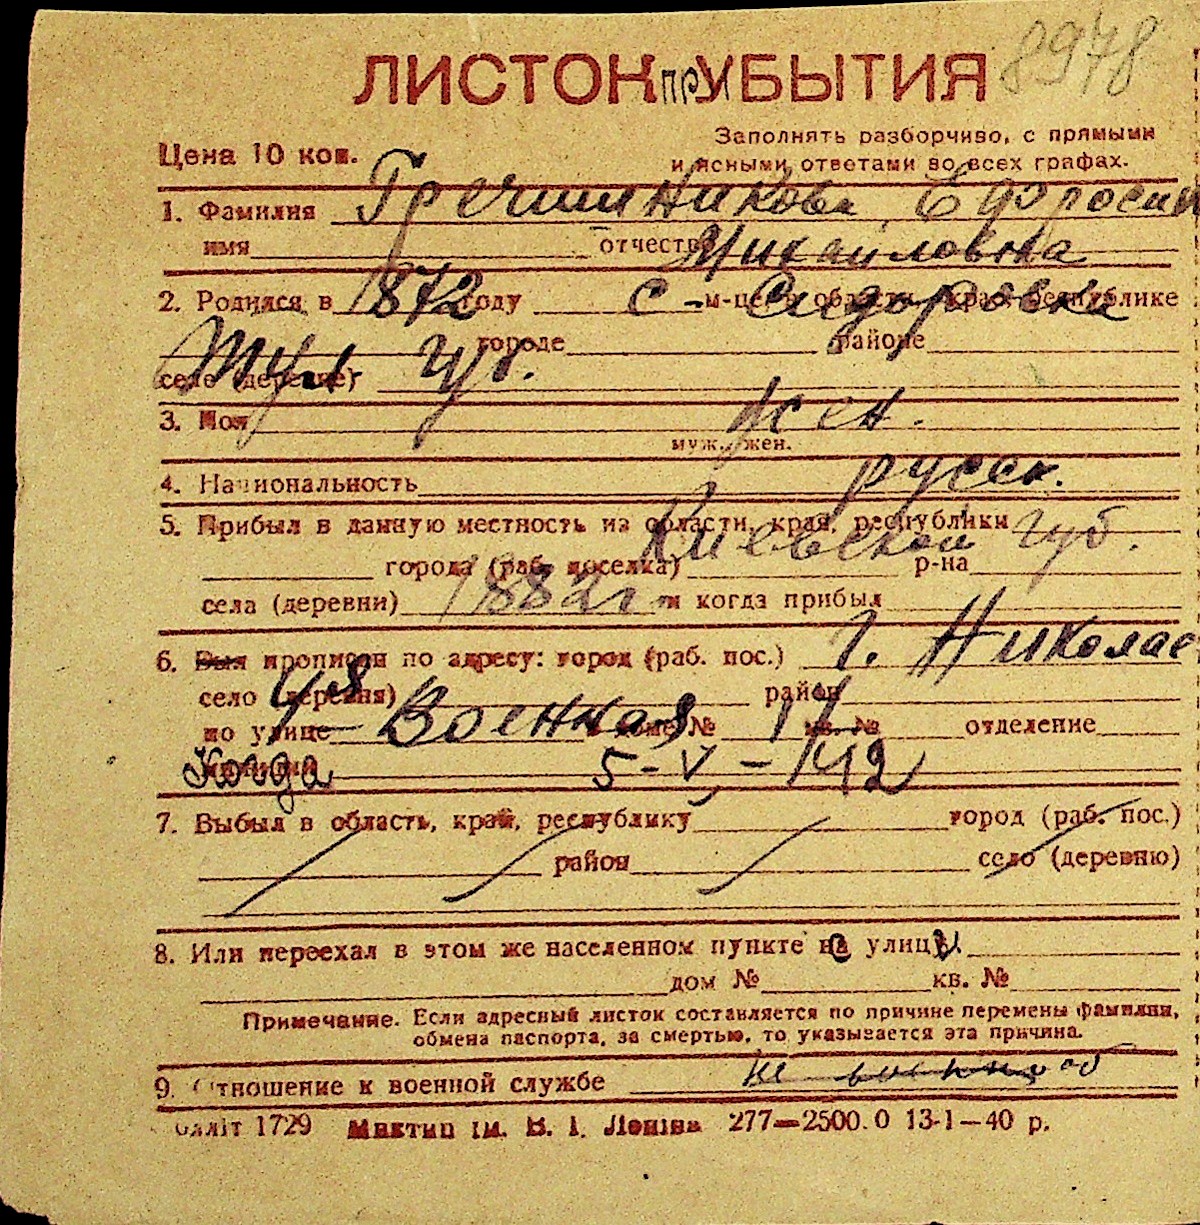 8978
ЛИСТОК приУБЫТИЯ
Заполнять разборчиво, с прямыми
Цена 10 коп.
и ясными ответами во всех графах.
1. Фамилия Гречишникова Ефросин
имя отчество Михайловна
2. Родился в 1872 году с-м-це в области, крае, республике Сидоровка
городе районе
село (деревне) Тул губ.
3. Пол жен.
муж., жен.
4. Национальность русск.
5. Прибыл в данную местность из области, края, республики Киевской губ.
города (раб. поселка) р-на
села (деревни) 1882г и когда прибыл
6. Был прописан по адресу: город (раб. пос.) г. Николае
село (деревня) район
по улице Военная дом № 14 кв. № отделение
Когда 5-V-142
7. Выбыл в область, край, республику город (раб. пос.)
район село (деревню)
8. Или переехал в этом же населенном пункте на улицу
дом № кв. №
Примечание. Если адресный листок составляется по причине перемены фамилии,
обмена паспорта, за смертью, то указывается эта причина.
9. Отношение к военной службе не военнооб
1729 Миктип ім. В. І. Леніна 277—2500.0 13-1—40 р.